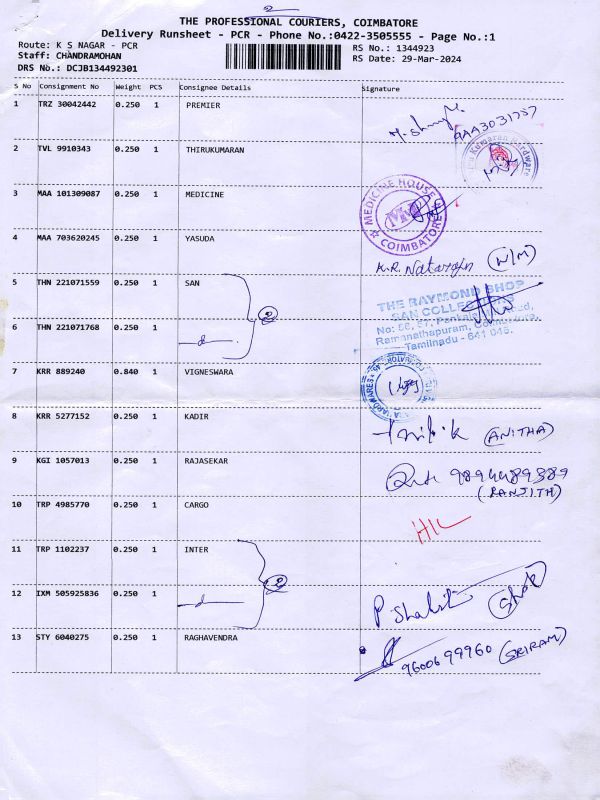 2
THE PROFESSIONAL COURIERS, COIMBATORE
Delivery Runsheet - PCR - Phone No.:0422-3505555 - Page No.:1
Route: K S NAGAR - PCR
RS No.: 1344923
Staff: CHANDRAMOHAN
RS Date: 29-Mar-2024
DRS No.: DCJB134492301
S No Consignment No Weight PCS Consignee Details Signature
1 TRZ 30042442 0.250 1 PREMIER
2 TVL 9910343 0.250 1 THIRUKUMARAN
3 MAA 101309087 0.250 1 MEDICINE
MEDICINE HOUSE
COIMBATORE
4 MAA 703620245 0.250 1 YASUDA
K.R. Natarajn (N/M)
5 THN 221071559 0.250 1 SAN
2
THE RAYMOND SHOP
SAN COLLECTIONS
6 THN 221071768 0.250 1 -d-
Ramanathapuram, Coimbatore,
Tamilnadu - 641 045.
7 KRR 889240 0.840 1 VIGNESWARA
8 KRR 5277152 0.250 1 KADIR
(ANITHA)
9 KGI 1057013 0.250 1 RAJASEKAR
(RANJITH)
10 TRP 4985770 0.250 1 CARGO
11 TRP 1102237 0.250 1 INTER
2
12 IXM 505925836 0.250 1 -d-
13 STY 6040275 0.250 1 RAGHAVENDRA
9600699960 (SRIRAM)